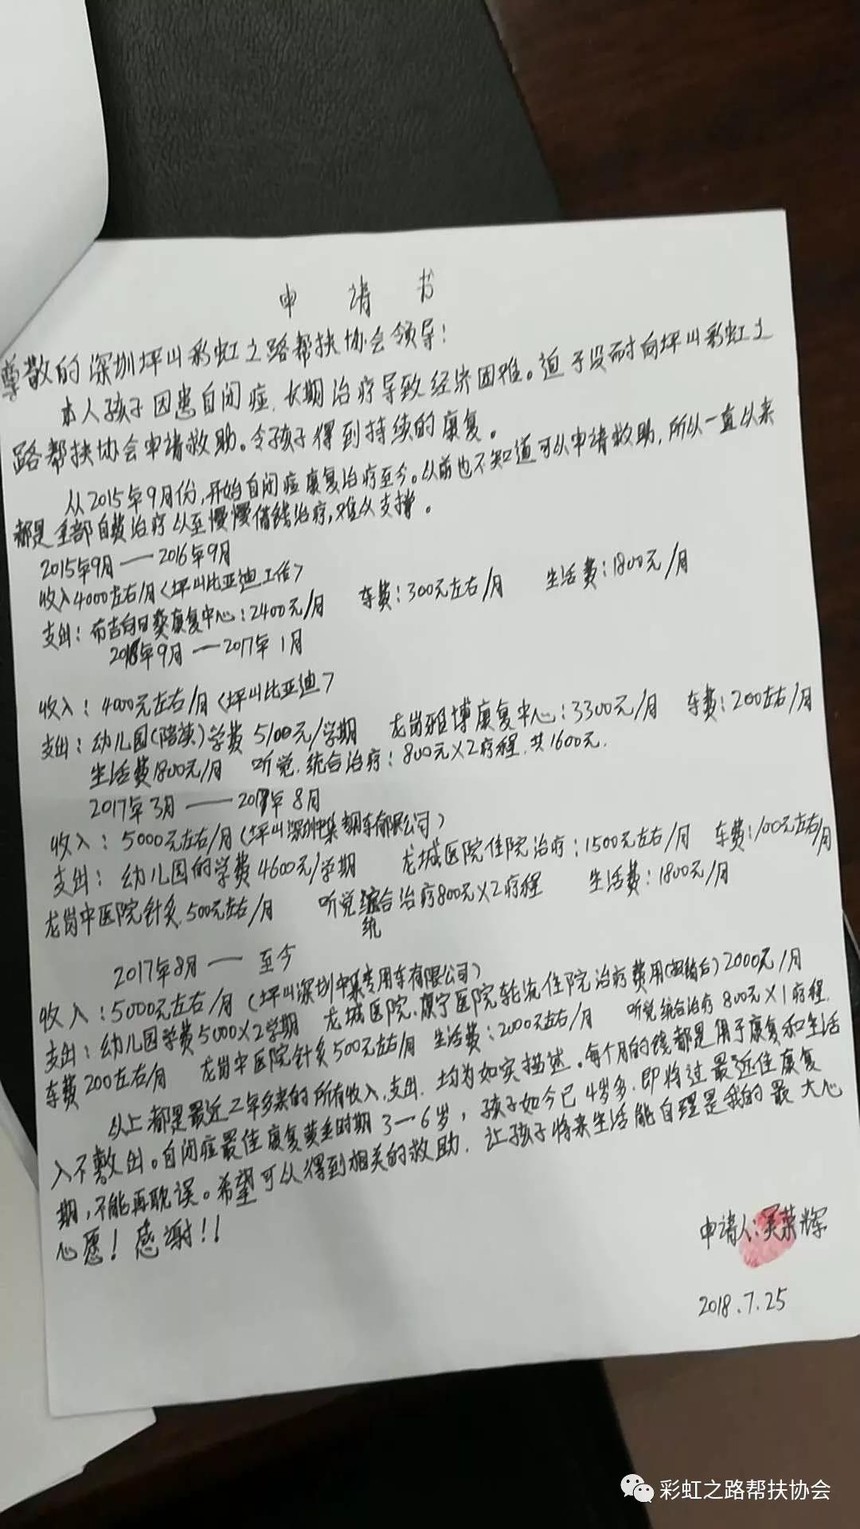 申请书
尊敬的深圳坪山彩虹之路帮扶协会领导：
本人孩子因患自闭症，长期治疗导致经济困难。迫于没而才向坪山彩虹之
路帮扶协会申请救助。令孩子得到持续的康复。
从2015年9月份，开始自闭症康复治疗至今。以前也不知道可以申请救助，所以一直以来
都是全部自费治疗以至慢慢借钱治疗，难以支撑。
2015年9月——2016年9月
收入4000左右/月〈坪山比亚迪工作〉
支出：布吉向日葵康复中心：2400元/月 车费：300元左右/月 生活费：1800元/月
年9月——2017年1月
收入：4000元左右/月〈坪山比亚迪〉
支出：幼儿园(陪读)学费5100元/学期 龙岗雅博康复中心：3300元/月 车费：200左右/月
生活费1800元/月 听觉.统合治疗：800元×2疗程.共1600元.
2017年3月——2017年8月
收入：5000元左右/月(坪山深圳中集专用车有限公司)
支出：幼儿园的学费4600元/学期 龙城医院住院治疗：1500元左右/月 车费：100元左右/月
龙岗中医院针灸.500元左右/月 听觉综合治疗800元×2疗程 生活费：1800元/月
统
2017年8月——至今
收入：5000元左右/月(坪山深圳中集专用车有限公司)
支出：幼儿园学费5000×2学期 龙城医院.康宁医院轮流住院治疗费用(报销后)2000元/月
车费200左右/月 龙岗中医院针灸500元左右/月 生活费：2000元左右/月 听觉统合治疗800元×1疗程.
以上都是最近2年多来的所有收入.支出.均为如实描述。每个月的钱都是用于康复和生活
入不敷出。自闭症最佳康复黄金时期3—6岁，孩子如今已4岁多.即将过最近佳康复
期，不能再耽误。希望可以得到相关的救助.让孩子将来生活能自理是我的最大心
心愿！感谢！！
申请人：吴荣辉
2018.7.25
彩虹之路帮扶协会